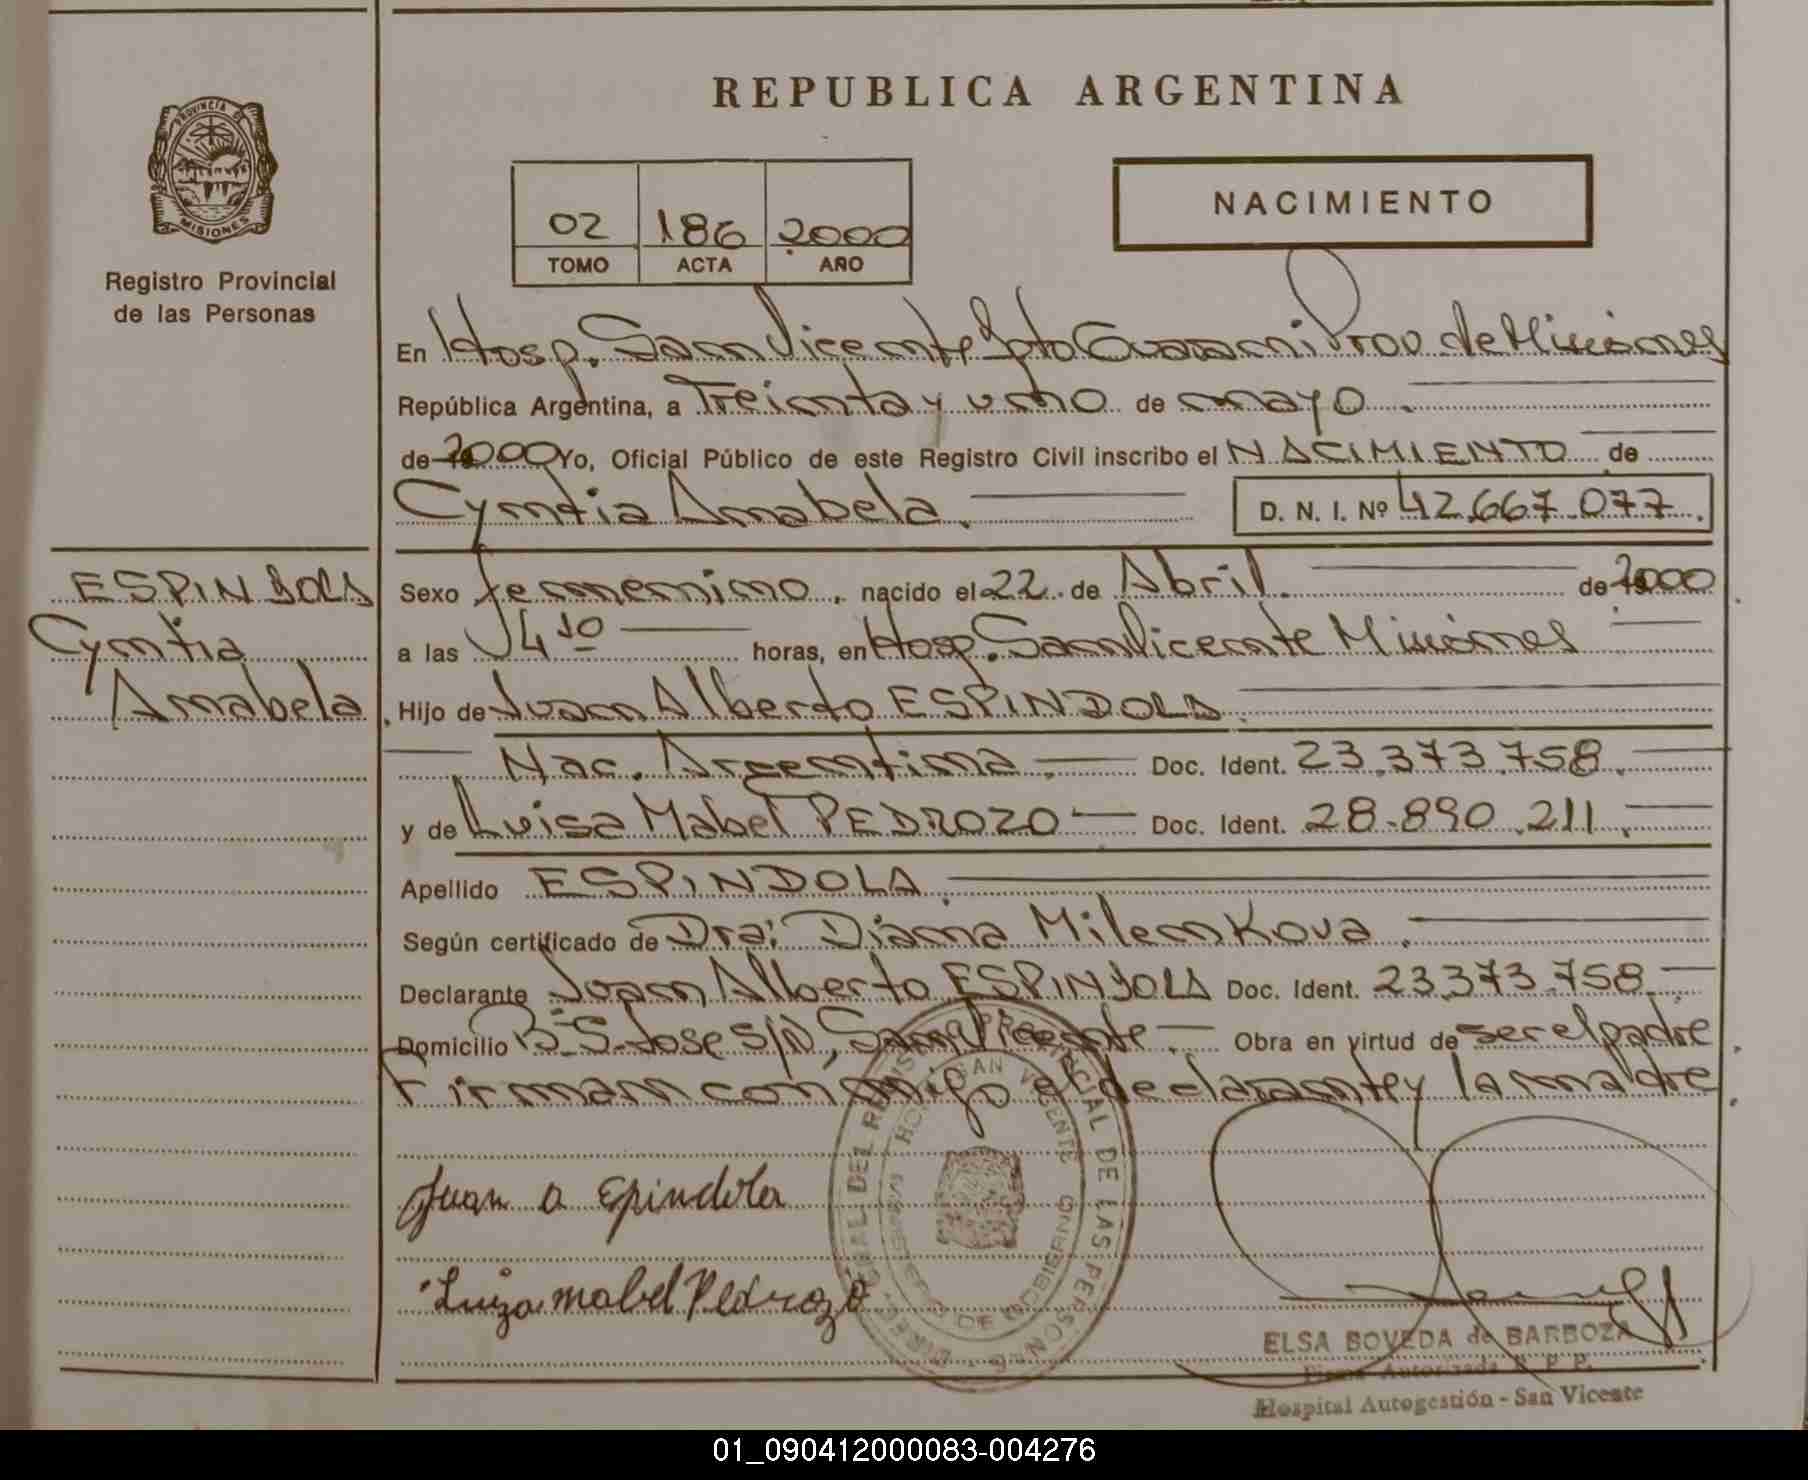 REPUBLICA ARGENTINA
PROVINCIA DE
MISIONES
Registro Provincial
de las Personas
02 186 2000
TOMO ACTA AÑO
NACIMIENTO
En Hosp. San Vicente Dpto Guarani Prov. de Misiones
República Argentina, a Treinta y uno de mayo.
de 2000 Yo, Oficial Público de este Registro Civil inscribo el NACIMIENTO de
Cyntia Anabela. D. N. I. Nº 42.667.077.
ESPINDOLA
Cyntia
Anabela.
Sexo femenino, nacido el 22 de Abril. de 2000
a las 14 10 horas, en Hosp. San Vicente Misiones
Hijo de Juan Alberto ESPINDOLA.
Nac. Argentina. Doc. Ident. 23.373.758.
y de Luisa Mabel PEDROZO Doc. Ident. 28.890.211.
Apellido ESPINDOLA.
Según certificado de Dra: Diana Milenkova.
Declarante Juan Alberto ESPINDOLA Doc. Ident. 23.373.758.
Domicilio Bº S. Jose S/N, San Vicente. Obra en virtud de ser el padre.
Firman conmigo el declarante y la madre.
Juan A Epindola
Luiza mabel Pedrozo
DE LAS PERSONAS
SAN VICENTE
ELSA BOVEDA de BARBOZA
Firma Autorizada R. P. P.
Hospital Autogestión - San Vicente
01_090412000083-004276